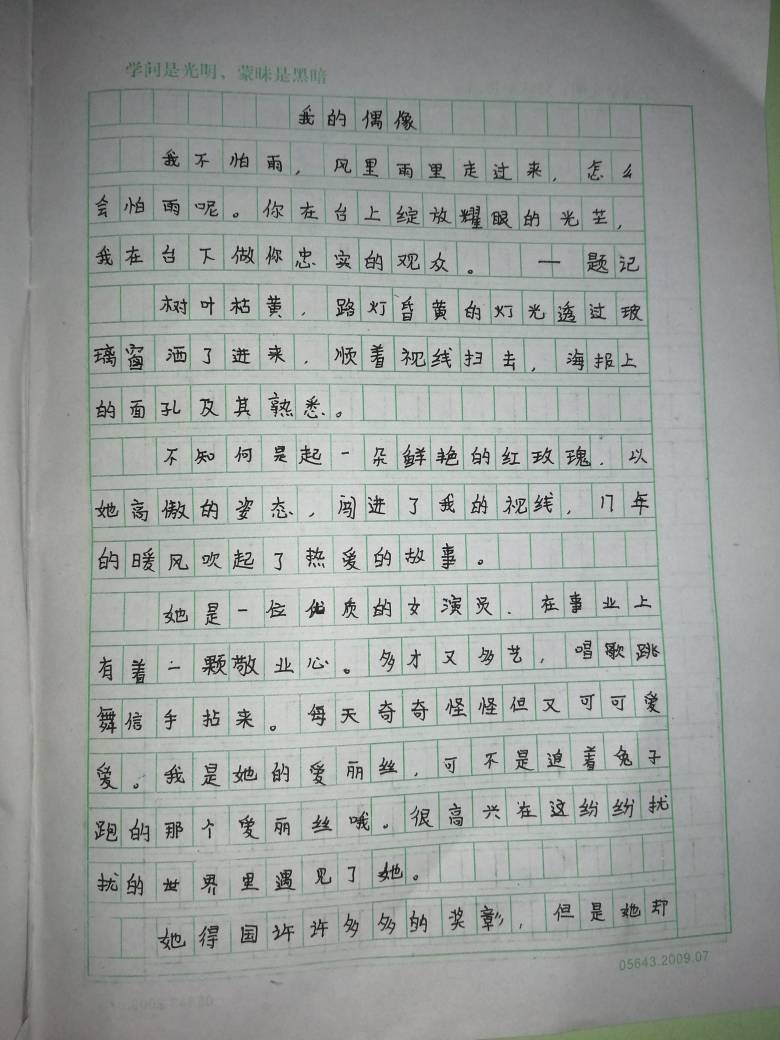 学问是光明，蒙昧是黑暗
我的偶像
我不怕雨，风里雨里走过来，怎么
会怕雨呢。你在台上绽放耀眼的光芒，
我在台下做你忠实的观众。 — 题记
树叶枯黄，路灯昏黄的灯光透过玻
璃窗洒了进来，顺着视线扫去，海报上
的面孔及其熟悉。
不知何是起一朵鲜艳的红玫瑰，以
她高傲的姿态，闯进了我的视线，17年
的暖风吹起了热爱的故事。
她是一位优质的女演员，在事业上
有着一颗敬业心。多才又多艺，唱歌跳
舞信手拈来。每天奇奇怪怪但又可可爱
爱。我是她的爱丽丝，可不是追着兔子
跑的那个爱丽丝哦。很高兴在这纷纷扰
扰的世界里遇见了她。
她得国许许多多的奖彰，但是她却
05643.2009.07